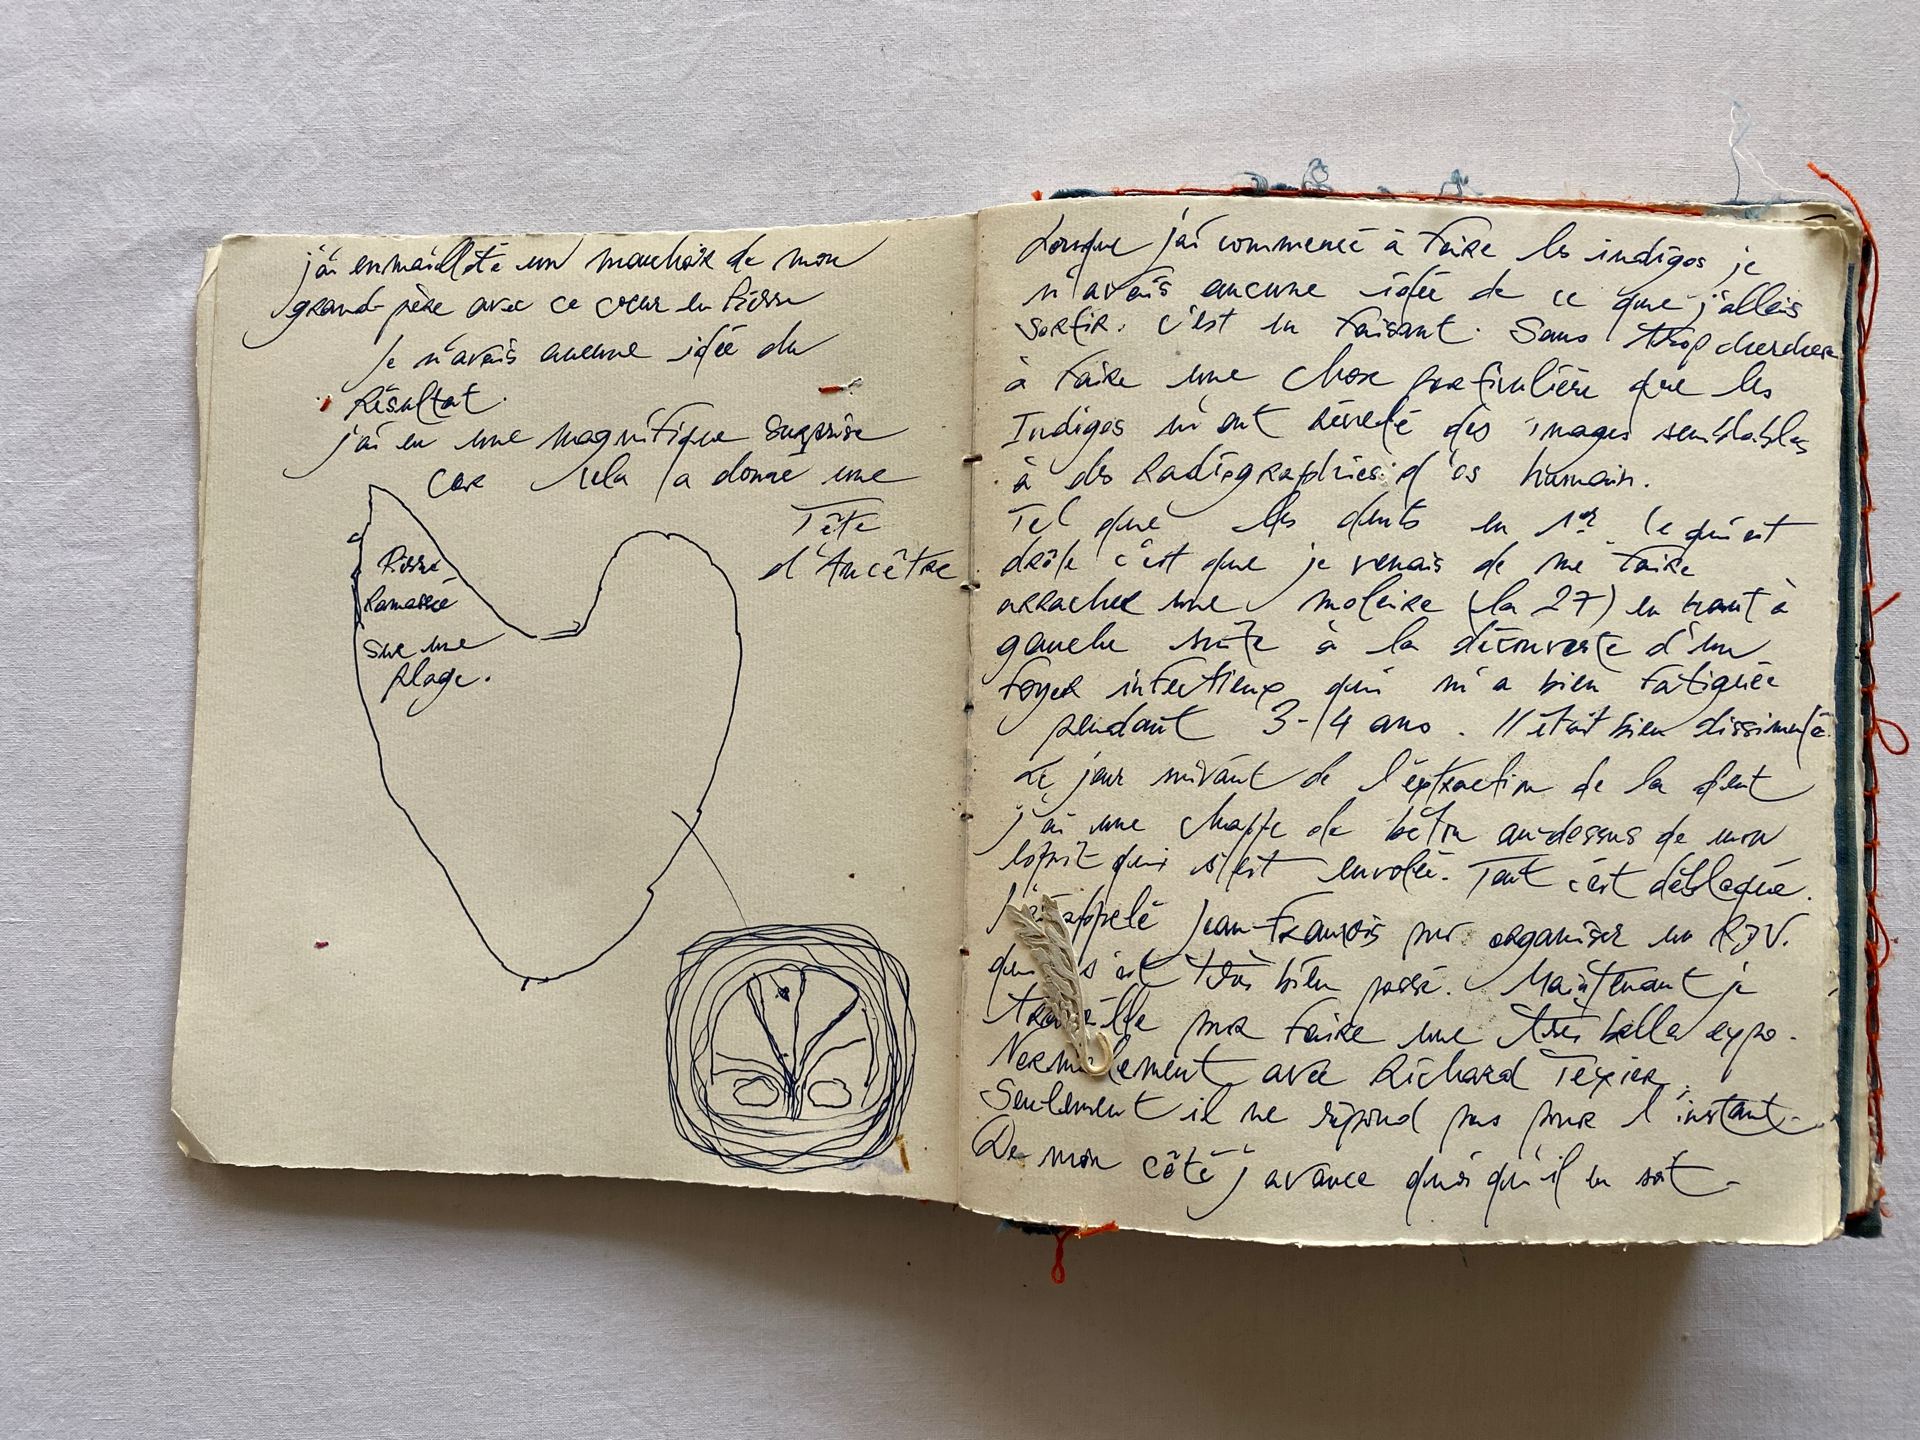 j'ai enmailloté un mouchoir de mon
grand-père avec ce cœur en Pierre
Je n'avais aucune idée du
Résultat.
j'ai eu une magnifique surprise
car cela a donné une
Tête
d'Ancêtre
Pierre
Ramassée
sur une
plage.
Lorsque j'ai commencé à faire les indigos je
n'avais aucune idée de ce que j'allais
sortir. c'est en faisant. Sans trop chercher
à faire une chose particulière que les
Indigos m'ont révélé des images semblables
à des Radiographies d'os humain.
Tel que les dents en 1er. Ce qui est
drôle c'est que je venais de me faire
arracher une molaire (la 27) en haut à
gauche suite à la découverte d'un
foyer infectieux qui m'a bien fatiguée
pendant 3-4 ans. Il était bien dissimulé.
Le jour suivant de l'extraction de la dent
j'ai une chappe de béton au-dessus de mon
esprit qui s'est envolée. Tout c'est débloqué.
J'ai appelé Jean-François pour organiser un RDV.
qui s'est très bien passé. Maintenant je
travaille pour faire une très belle expo.
Normalement avec Richard Texier.
Seulement il ne répond pas pour l'instant.
De mon côté j'avance quoi qu'il en soit.